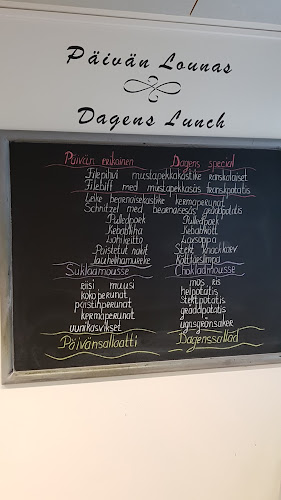 Päivän Lounas
Dagens Lunch
Päivän erikoinen Dagens special
Filepihvi mustapekkakastike ranskalaiset
Filebiff med mustapekkasås franskpotatis
Leike bearnaisekastike kermaperunat
Schnitzel med bearnaisesås gräddpotatis
Pulledpork Pulledpork
Kebabliha Kebabkött
Lohikeitto Laxsoppa
Paistetut nakit Stekt knackkorv
Jauhelihamureke Köttfärslimpa
Suklaamousse Chokladmousse
riisi muusi mos ris
kokoperunat helpotatis
paistinperunat Stektpotatis
kermaperunat gräddpotatis
uunikasvikset ugnsgrönsaker
Päivänsallaatti Dagenssallad